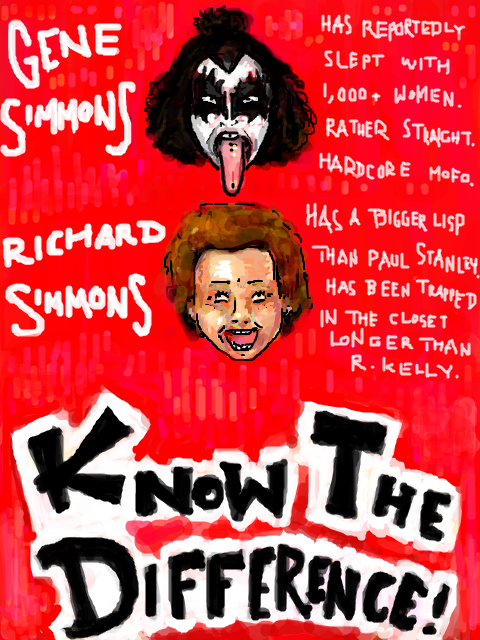 GENE
SIMMONS
HAS REPORTEDLY
SLEPT WITH
1,000+ WOMEN.
RATHER STRAIGHT.
HARDCORE MOFO.
RICHARD
SIMMONS
HAS A BIGGER LISP
THAN PAUL STANLEY.
HAS BEEN TRAPPED
IN THE CLOSET
LONGER THAN
R. KELLY.
KNOW THE
DIFFERENCE!